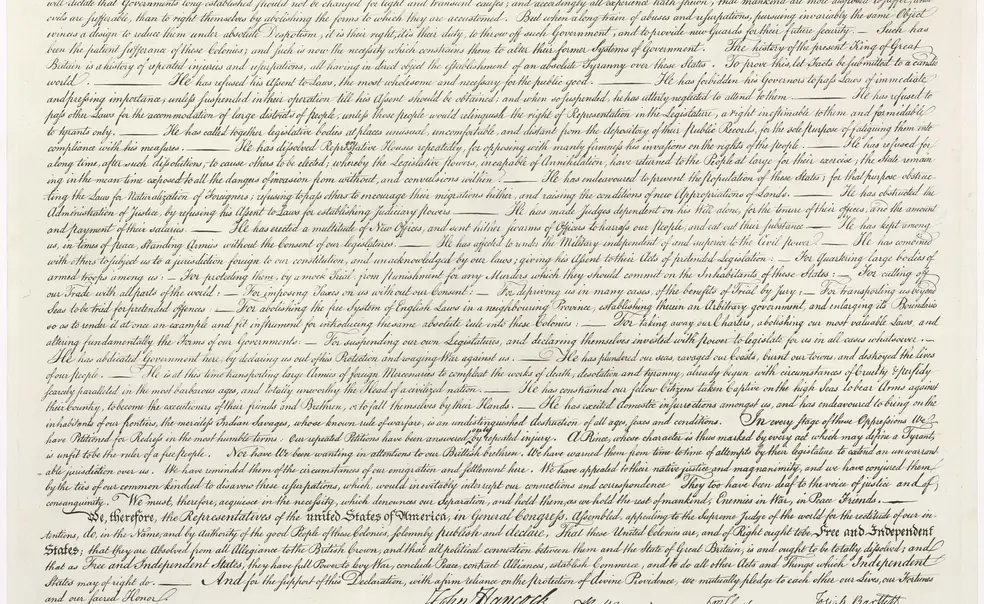 will dictate that Governments long established should not be changed for light and transient causes; and accordingly all experience hath shewn, that mankind are more disposed to suffer, while
evils are sufferable, than to right themselves by abolishing the forms to which they are accustomed. But when a long train of abuses and usurpations, pursuing invariably the same Object
evinces a design to reduce them under absolute Despotism, it is their right, it is their duty, to throw off such Government, and to provide new Guards for their future security. — Such has
been the patient sufferance of these Colonies; and such is now the necessity which constrains them to alter their former Systems of Government. The history of the present King of Great
Britain is a history of repeated injuries and usurpations, all having in direct object the establishment of an absolute Tyranny over these States. To prove this, let Facts be submitted to a candid
world. — He has refused his Assent to Laws, the most wholesome and necessary for the public good. — He has forbidden his Governors to pass Laws of immediate
and pressing importance, unless suspended in their operation till his Assent should be obtained; and when so suspended, he has utterly neglected to attend to them. — He has refused to
pass other Laws for the accommodation of large districts of people, unless those people would relinquish the right of Representation in the Legislature, a right inestimable to them and formidable
to tyrants only. — He has called together legislative bodies at places unusual, uncomfortable, and distant from the depository of their public Records, for the sole purpose of fatiguing them into
compliance with his measures. — He has dissolved Representative Houses repeatedly, for opposing with manly firmness his invasions on the rights of the people. — He has refused for
a long time, after such dissolutions, to cause others to be elected; whereby the Legislative powers, incapable of Annihilation, have returned to the People at large for their exercise; the State remain
ing in the mean time exposed to all the dangers of invasion from without, and convulsions within. — He has endeavoured to prevent the population of these States; for that purpose obstruc
ting the Laws for Naturalization of Foreigners; refusing to pass others to encourage their migrations hither, and raising the conditions of new Appropriations of Lands. — He has obstructed the
Administration of Justice, by refusing his Assent to Laws for establishing Judiciary powers. — He has made Judges dependent on his Will alone, for the tenure of their offices, and the amount
and payment of their salaries. — He has erected a multitude of New Offices, and sent hither swarms of Officers to harrass our people, and eat out their substance. — He has kept among
us, in times of peace, Standing Armies without the Consent of our legislatures. — He has affected to render the Military independent of and superior to the Civil power. — He has combined
with others to subject us to a jurisdiction foreign to our constitution, and unacknowledged by our laws; giving his Assent to their Acts of pretended Legislation: — For Quartering large bodies of
armed troops among us: — For protecting them, by a mock Trial, from punishment for any Murders which they should commit on the Inhabitants of these States: — For cutting off
our Trade with all parts of the world: — For imposing Taxes on us without our Consent: — For depriving us in many cases, of the benefits of Trial by Jury: — For transporting us beyond
Seas to be tried for pretended offences — For abolishing the free System of English Laws in a neighbouring Province, establishing therein an Arbitrary government, and enlarging its Boundaries
so as to render it at once an example and fit instrument for introducing the same absolute rule into these Colonies: — For taking away our Charters, abolishing our most valuable Laws, and
altering fundamentally the Forms of our Governments: — For suspending our own Legislatures, and declaring themselves invested with power to legislate for us in all cases whatsoever. —
He has abdicated Government here, by declaring us out of his Protection and waging War against us. — He has plundered our seas, ravaged our Coasts, burnt our towns, and destroyed the lives
of our people. — He is at this time transporting large Armies of foreign Mercenaries to compleat the works of death, desolation and tyranny, already begun with circumstances of Cruelty & perfidy
scarcely paralleled in the most barbarous ages, and totally unworthy the Head of a civilized nation. — He has constrained our fellow Citizens taken Captive on the high Seas to bear Arms against
their Country, to become the executioners of their friends and Brethren, or to fall themselves by their Hands. — He has excited domestic insurrections amongst us, and has endeavoured to bring on the
inhabitants of our frontiers, the merciless Indian Savages, whose known rule of warfare, is an undistinguished destruction of all ages, sexes and conditions. In every stage of these Oppressions We
have Petitioned for Redress in the most humble terms: Our repeated Petitions have been answered only by repeated injury. A Prince, whose character is thus marked by every act which may define a Tyrant,
is unfit to be the ruler of a free people. Nor have We been wanting in attentions to our Brittish brethren. We have warned them from time to time of attempts by their legislature to extend an unwarrant
able jurisdiction over us. We have reminded them of the circumstances of our emigration and settlement here. We have appealed to their native justice and magnanimity, and we have conjured them
by the ties of our common kindred to disavow these usurpations, which, would inevitably interrupt our connections and correspondence They too have been deaf to the voice of justice and of
consanguinity. We must, therefore, acquiesce in the necessity, which denounces our Separation, and hold them, as we hold the rest of mankind, Enemies in War, in Peace Friends. —
We, therefore, the Representatives of the united States of America, in General Congress, Assembled, appealing to the Supreme Judge of the world for the rectitude of our in
tentions, do, in the Name, and by Authority of the good People of these Colonies, solemnly publish and declare, That these United Colonies are, and of Right ought to be Free and Independent
States; that they are Absolved from all Allegiance to the British Crown, and that all political connection between them and the State of Great Britain, is and ought to be totally dissolved; and
that as Free and Independent States, they have full Power to levy War, conclude Peace, contract Alliances, establish Commerce, and to do all other Acts and Things which Independent
States may of right do. — And for the support of this Declaration, with a firm reliance on the protection of divine Providence, we mutually pledge to each other our Lives, our Fortunes
and our sacred Honor.
John Hancock
Josiah Bartlett